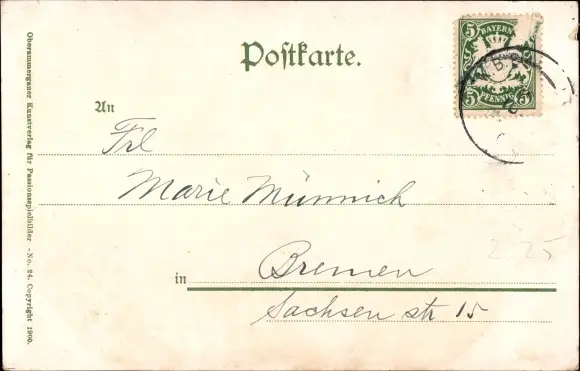 Postkarte.
BAYERN
5 5
PFENNIG
5 5
An
Frl
Marie Münnich
in Bremen
Sachsen str 15
2.25
Oberammergauer Kunstverlag für Passionsspielbilder - No. 24. Copyright 1900.